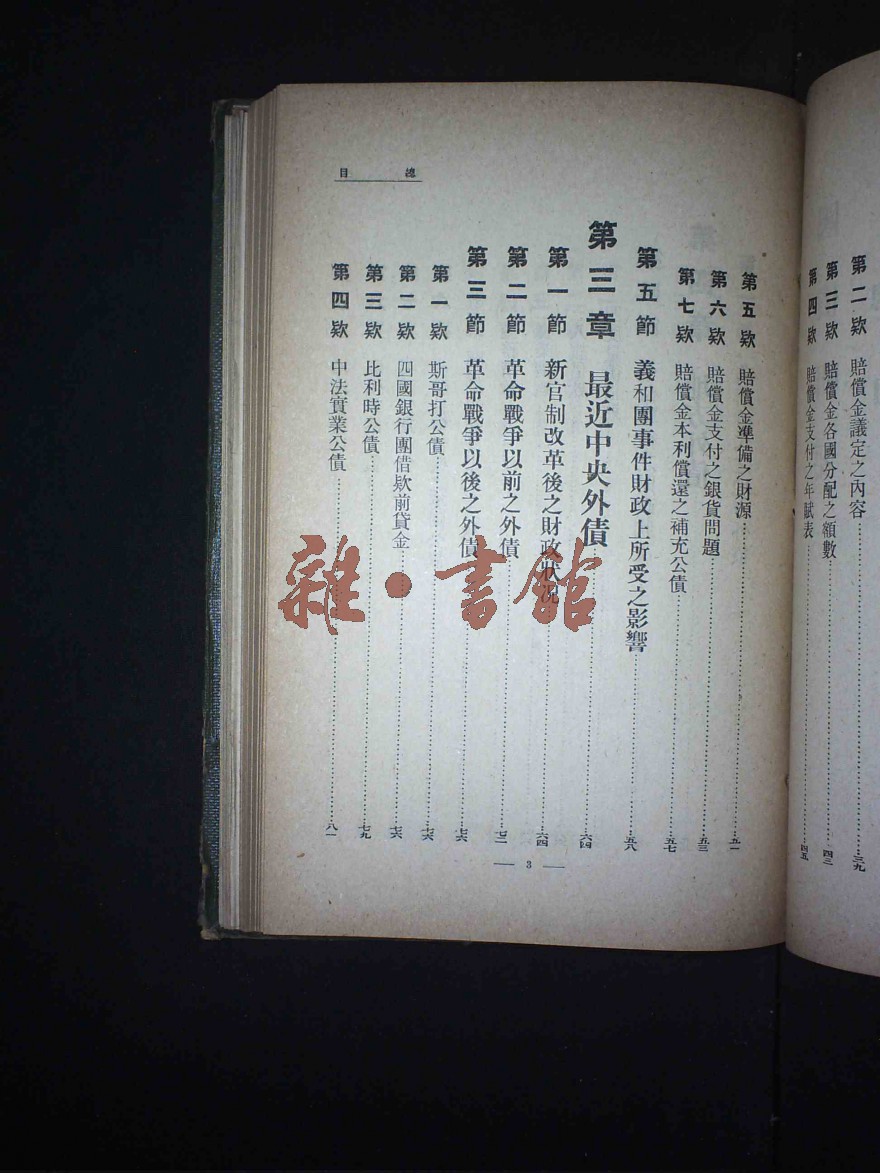 第二欵 賠償金議定之內容……三九
第三欵 賠償金各國分配之額數……四三
第四欵 賠償金支付之年賦表……四五
總目
第五欵 賠償金準備之財源……五一
第六欵 賠償金支付之銀貨問題……五三
第七欵 賠償金本利償還之補充公債……五七
第五節 義和團事件財政上所受之影響……五八
第三章 最近中央外債……六四
第一節 新官制改革後之財政狀況……六四
第二節 革命戰爭以前之外債……七二
第三節 革命戰爭以後之外債……七六
第一欵 斯哥打公債……七六
第二欵 四國銀行團借欵前貸金……七六
第三欵 比利時公債……七九
第四欵 中法實業公債……八一
— 3 —
雜·書館